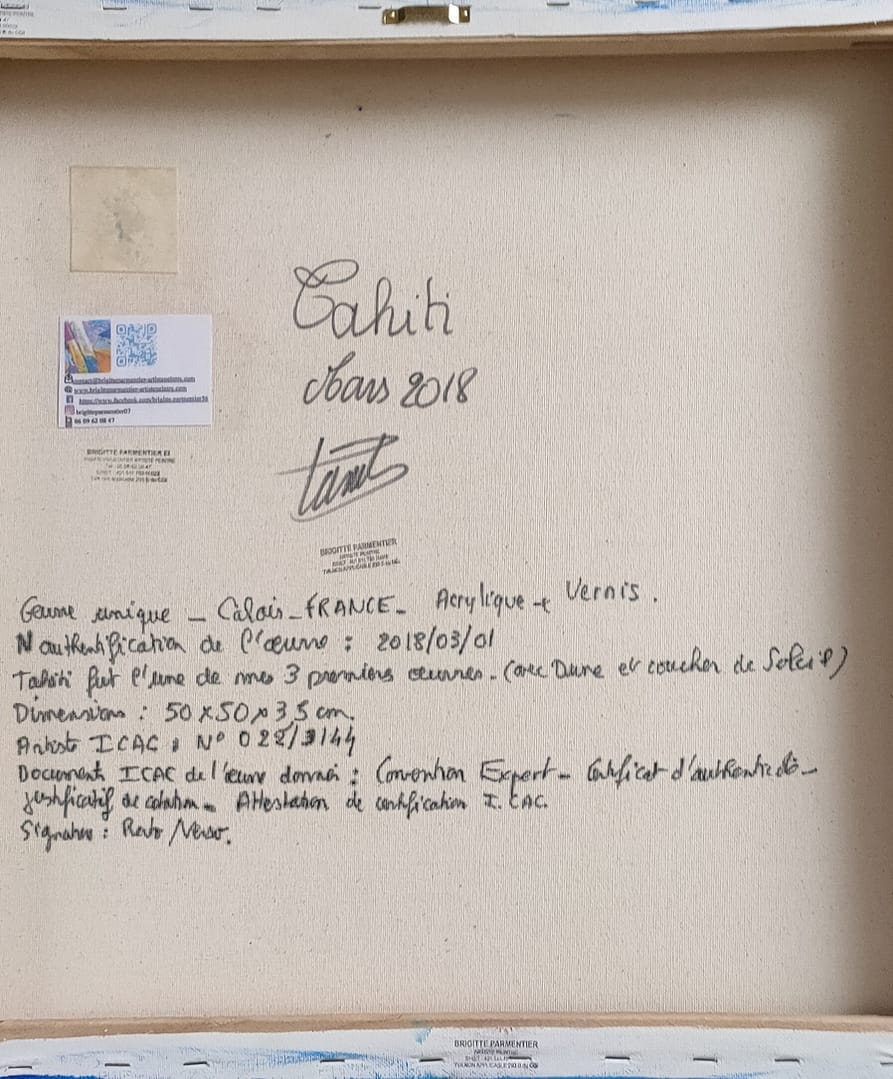 Tahiti
Mars 2018
www.brigitteparmentier-artistepeintre.com
brigitteparmentier07
06 09 62 08 47
BRIGITTE PARMENTIER EI
BRIGITTE PARMENTIER
Oeuvre unique _ Calais_FRANCE_ Acrylique et Vernis.
N authentification de l'œuvre : 2018/03/01
Tahiti fut l'une de mes 3 premières œuvres. (avec Dune et coucher de Soleil)
Dimensions : 50x50x3,5 cm.
Artiste ICAC : N° 022/3144
Document ICAC de l'œuvre donnés : Convention Expert_ Certificat d'authenticité_
justificatif de cotation_ Attestation de certification I.CAC.
Signature : Recto/Verso.
BRIGITTE PARMENTIER
ARTISTE PEINTRE